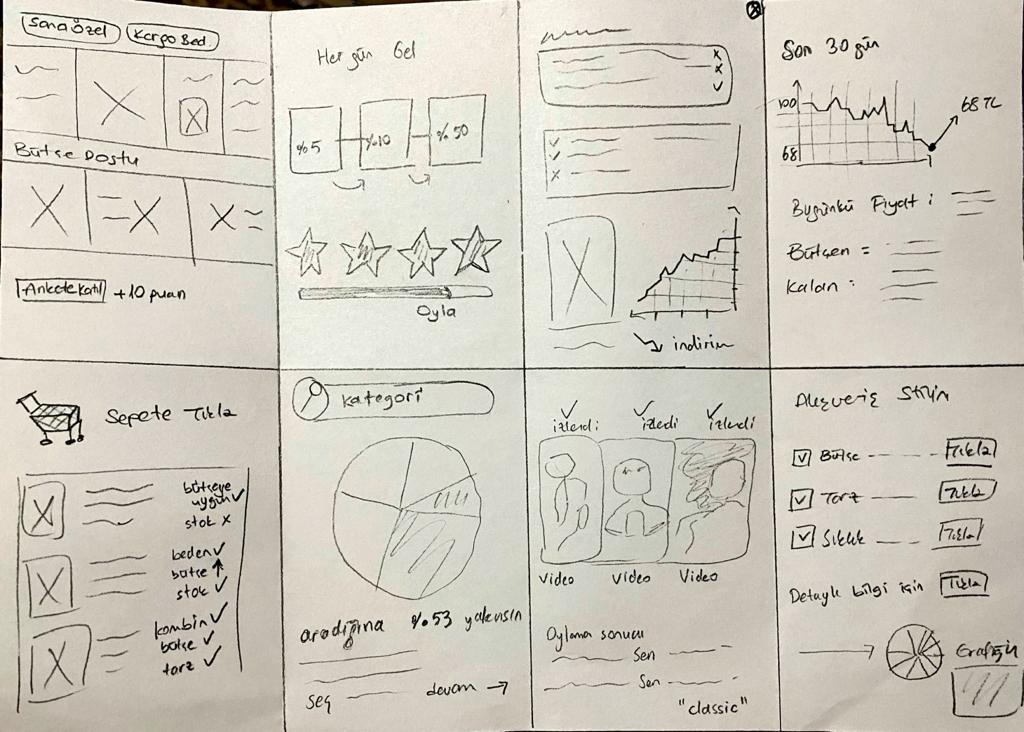 Sana Özel
Kargo Bed.
Bütçe Dostu
Ankete katıl +10 puan
Her gün Gel
%5
%10
%50
Oyla
indirim
Son 30 gün
100
68
68 TL
Bugünkü Fiyat :
Bütçen =
Kalan :
Sepete Tıkla
bütçeye
uygun ✓
stok x
beden ✓
bütçe ↑
stok ✓
kombin ✓
bütçe ✓
tarz ✓
Kategori
aradığına %53 yakınsın
seç devam →
✓ ✓ ✓
izlendi izlendi izlendi
Video Video Video
Oylama sonucu
Sen
Sen
"classic"
Alışveriş Stilin
Bütçe Tıkla
Tarz Tıkla
Sıklık Tıkla
Detaylı bilgi için Tıkla
Grafiğin